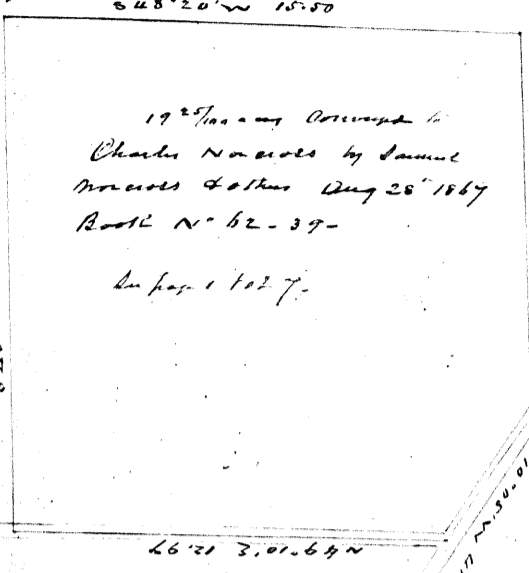 S 48° 20' W 15.50
19 25/100 acres Conveyed to
Charles Norcross by Samuel
Norcross & others Aug 28" 1867
Book No 62 - 39 -
See page 1
N 49° 10' E 12.97